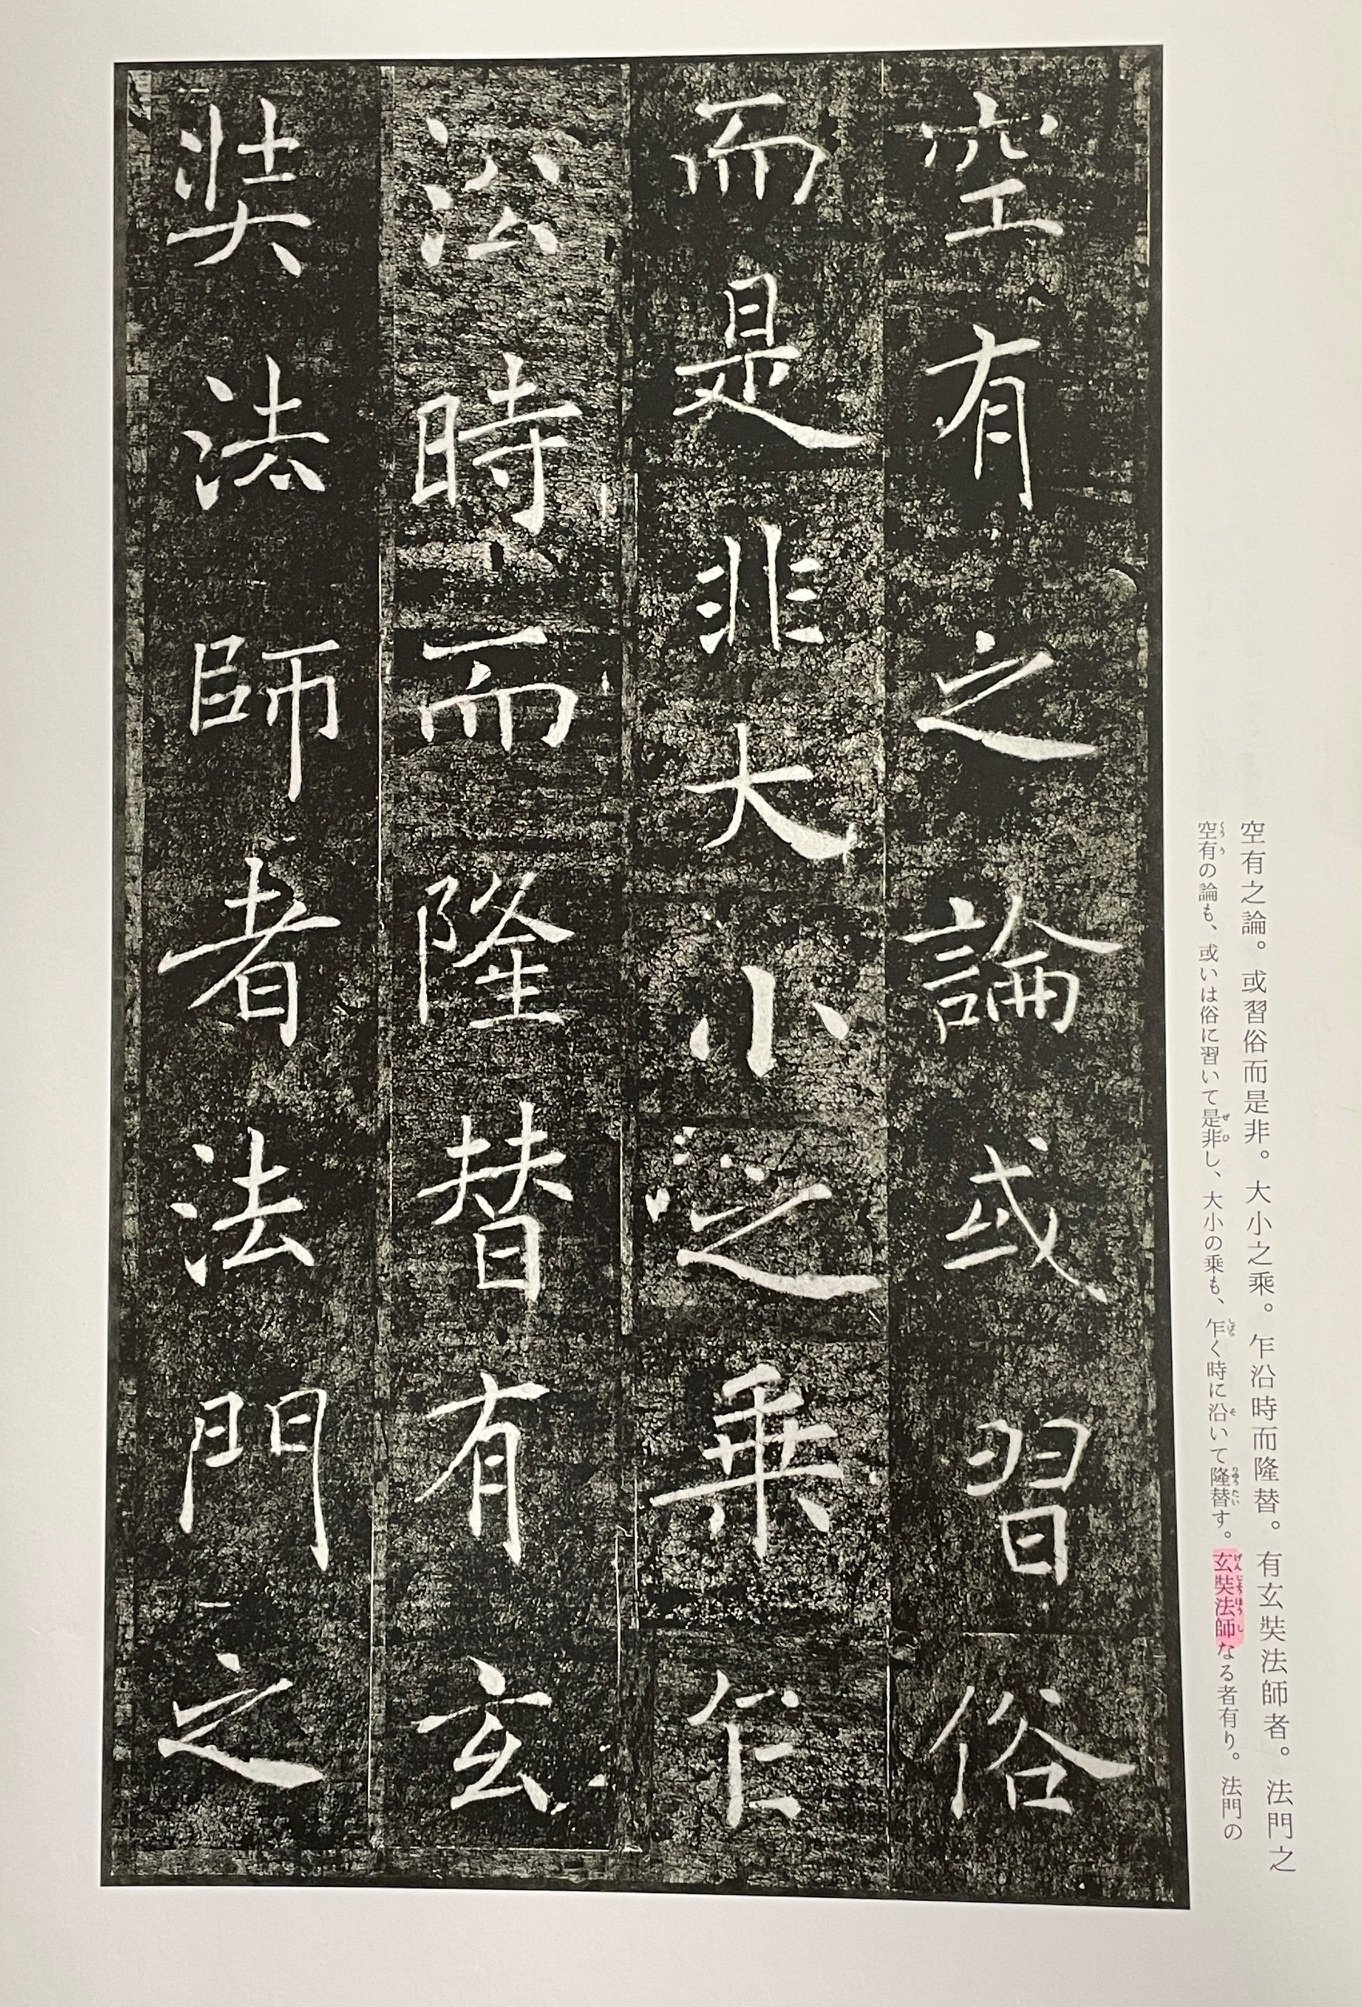 空有之論。或習俗而是非。大小之乘。乍沿時而隆替。有玄奘法師者。法門之
空有の論も、或いは俗に習いて是非し、大小の乗も、乍く時に沿いて隆替す。玄奘法師なる者有り。法門の
空有之論或習俗
而是非大小之乘乍
沿時而隆替有玄
奘法師者法門之